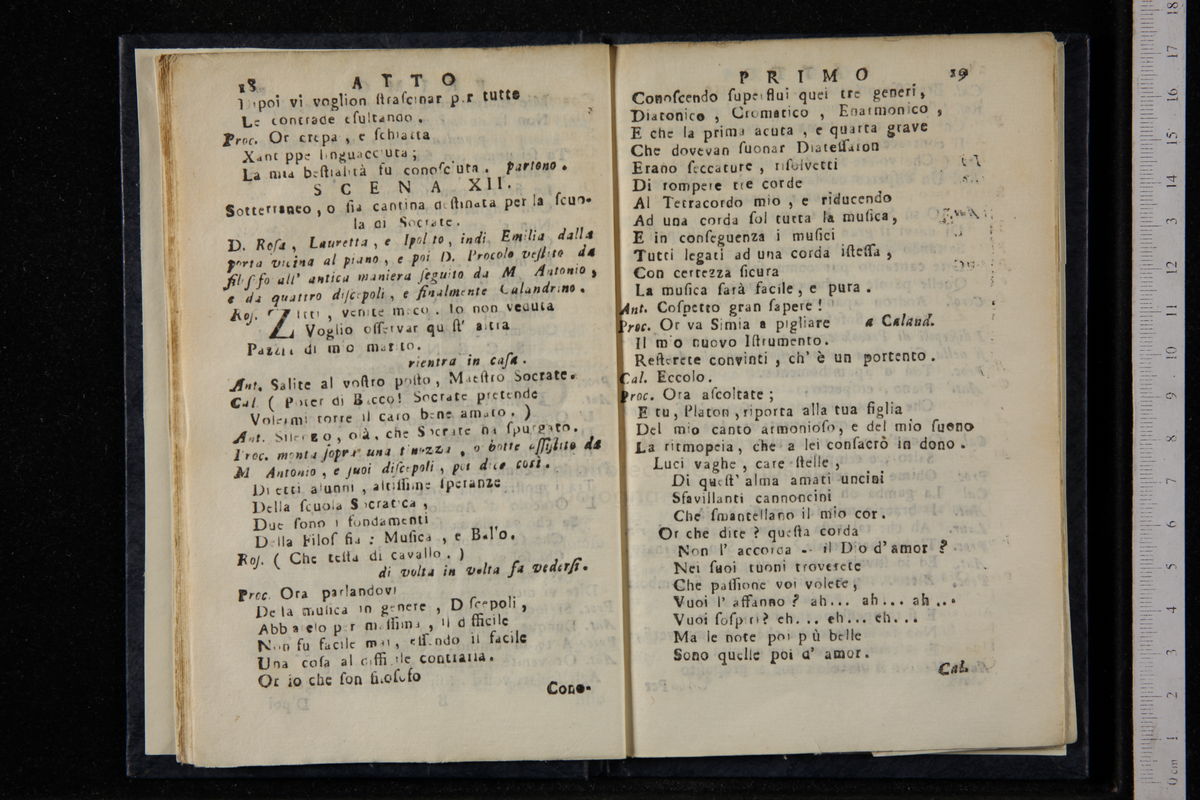 18 ATTO
Dipoi vi voglion ſtraſcinar per tutte
Le contrade eſultando.
Proc. Or crepa, e ſchiatta
Xantippe linguacciuta;
La mia beſtialità fu conoſciuta. partono.
SCENA XII.
Sotterraneo, o ſia cantina deſtinata per la ſcuo-
la di Socrate.
D. Roſa, Lauretta, e Ipolito, indi Emilia dalla
porta vicina al piano, e poi D. Procolo veſtito da
filoſofo all' antica maniera ſeguito da M. Antonio,
e da quattro diſcepoli, e finalmente Calandrino.
Roſ. Zitti, venite meco. Io non veduta
Voglio oſſervar queſt' altra
Pazzia di mio marito.
rientra in caſa.
Ant. Salite al voſtro poſto, Maeſtro Socrate.
Cal. ( Poter di Bacco! Socrate pretende
Volermi torre il caro bene amato. )
Ant. Silenzo, olà, che Socrate ha ſpurgato.
Proc. monta ſopra una tinozza, o botte aſſiſtito da
M. Antonio, e ſuoi diſcepoli, poi dice così.
Diletti alunni, altiſſime ſperanze
Della ſcuola Socratica,
Due ſono i fondamenti
Della Filoſofia: Muſica, e Ballo.
Roſ. ( Che teſta di cavallo. )
di volta in volta fa vederſi.
Proc. Ora parlandovi
Della muſica in genere, Diſcepoli,
Abbiatelo per maſſima, il difficile
Non fu facile mai, eſſendo il facile
Una coſa al difficile contraria.
Or io che ſon filoſofo
Cono-
PRIMO 19
Conoſcendo ſuperflui quei tre generi,
Diatonico, Cromatico, Enarmonico,
E che la prima acuta, e quarta grave
Che dovevan ſuonar Diateſſaron
Erano ſeccature, riſolvetti
Di rompere tre corde
Al Tetracordo mio, e riducendo
Ad una corda ſol tutta la muſica,
E in conſeguenza i muſici
Tutti legati ad una corda iſteſſa,
Con certezza ſicura
La muſica ſarà facile, e pura.
Ant. Coſpetto gran ſapere!
Proc. Or va Simia a pigliare a Caland.
Il mio nuovo Iſtrumento.
Reſterete convinti, ch' è un portento.
Cal. Eccolo.
Proc. Ora aſcoltate;
E tu, Platon, riporta alla tua figlia
Del mio canto armonioſo, e del mio ſuono
La ritmopeia, che a lei conſacrò in dono.
Luci vaghe, care ſtelle,
Di queſt' alma amati uncini
Sfavillanti cannoncini
Che ſmantellano il mio cor.
Or che dite? queſta corda
Non l' accorda -- il Dio d' amor?
Nei ſuoi tuoni troverete
Che paſſione voi volete,
Vuoi l' affanno? ah... ah... ah...
Vuoi ſoſpiri? eh... eh... eh...
Ma le note poi più belle
Sono quelle poi d' amor.
Cal.